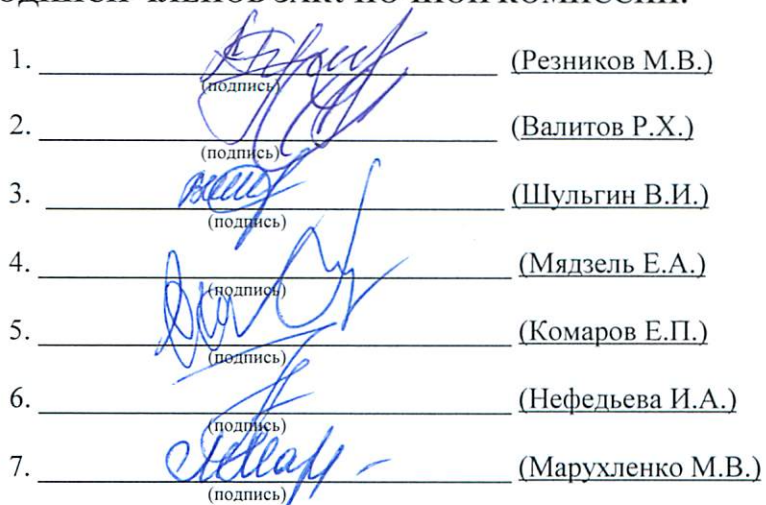 1. (Резников М.В.)
(подпись)
2. (Валитов Р.Х.)
(подпись)
3. (Шульгин В.И.)
(подпись)
4. (Мядзель Е.А.)
(подпись)
5. (Комаров Е.П.)
(подпись)
6. (Нефедьева И.А.)
(подпись)
7. (Марухленко М.В.)
(подпись)